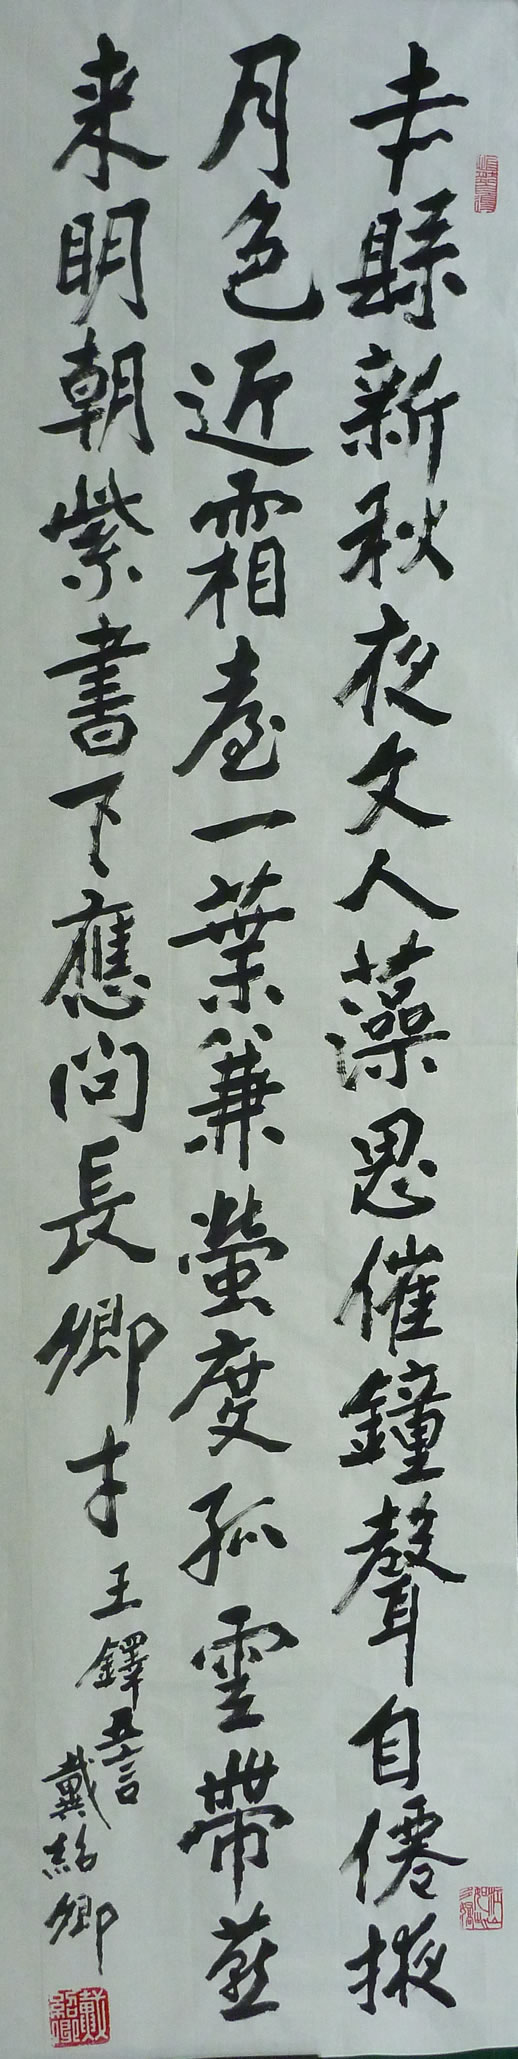 赤縣新秋夜文人藻思催鐘聲自僊掖
月色近霜臺一葉兼螢度孤雲帶燕
来明朝紫書下應問長卿才
王鐸五言
戴紹卿
戴紹卿